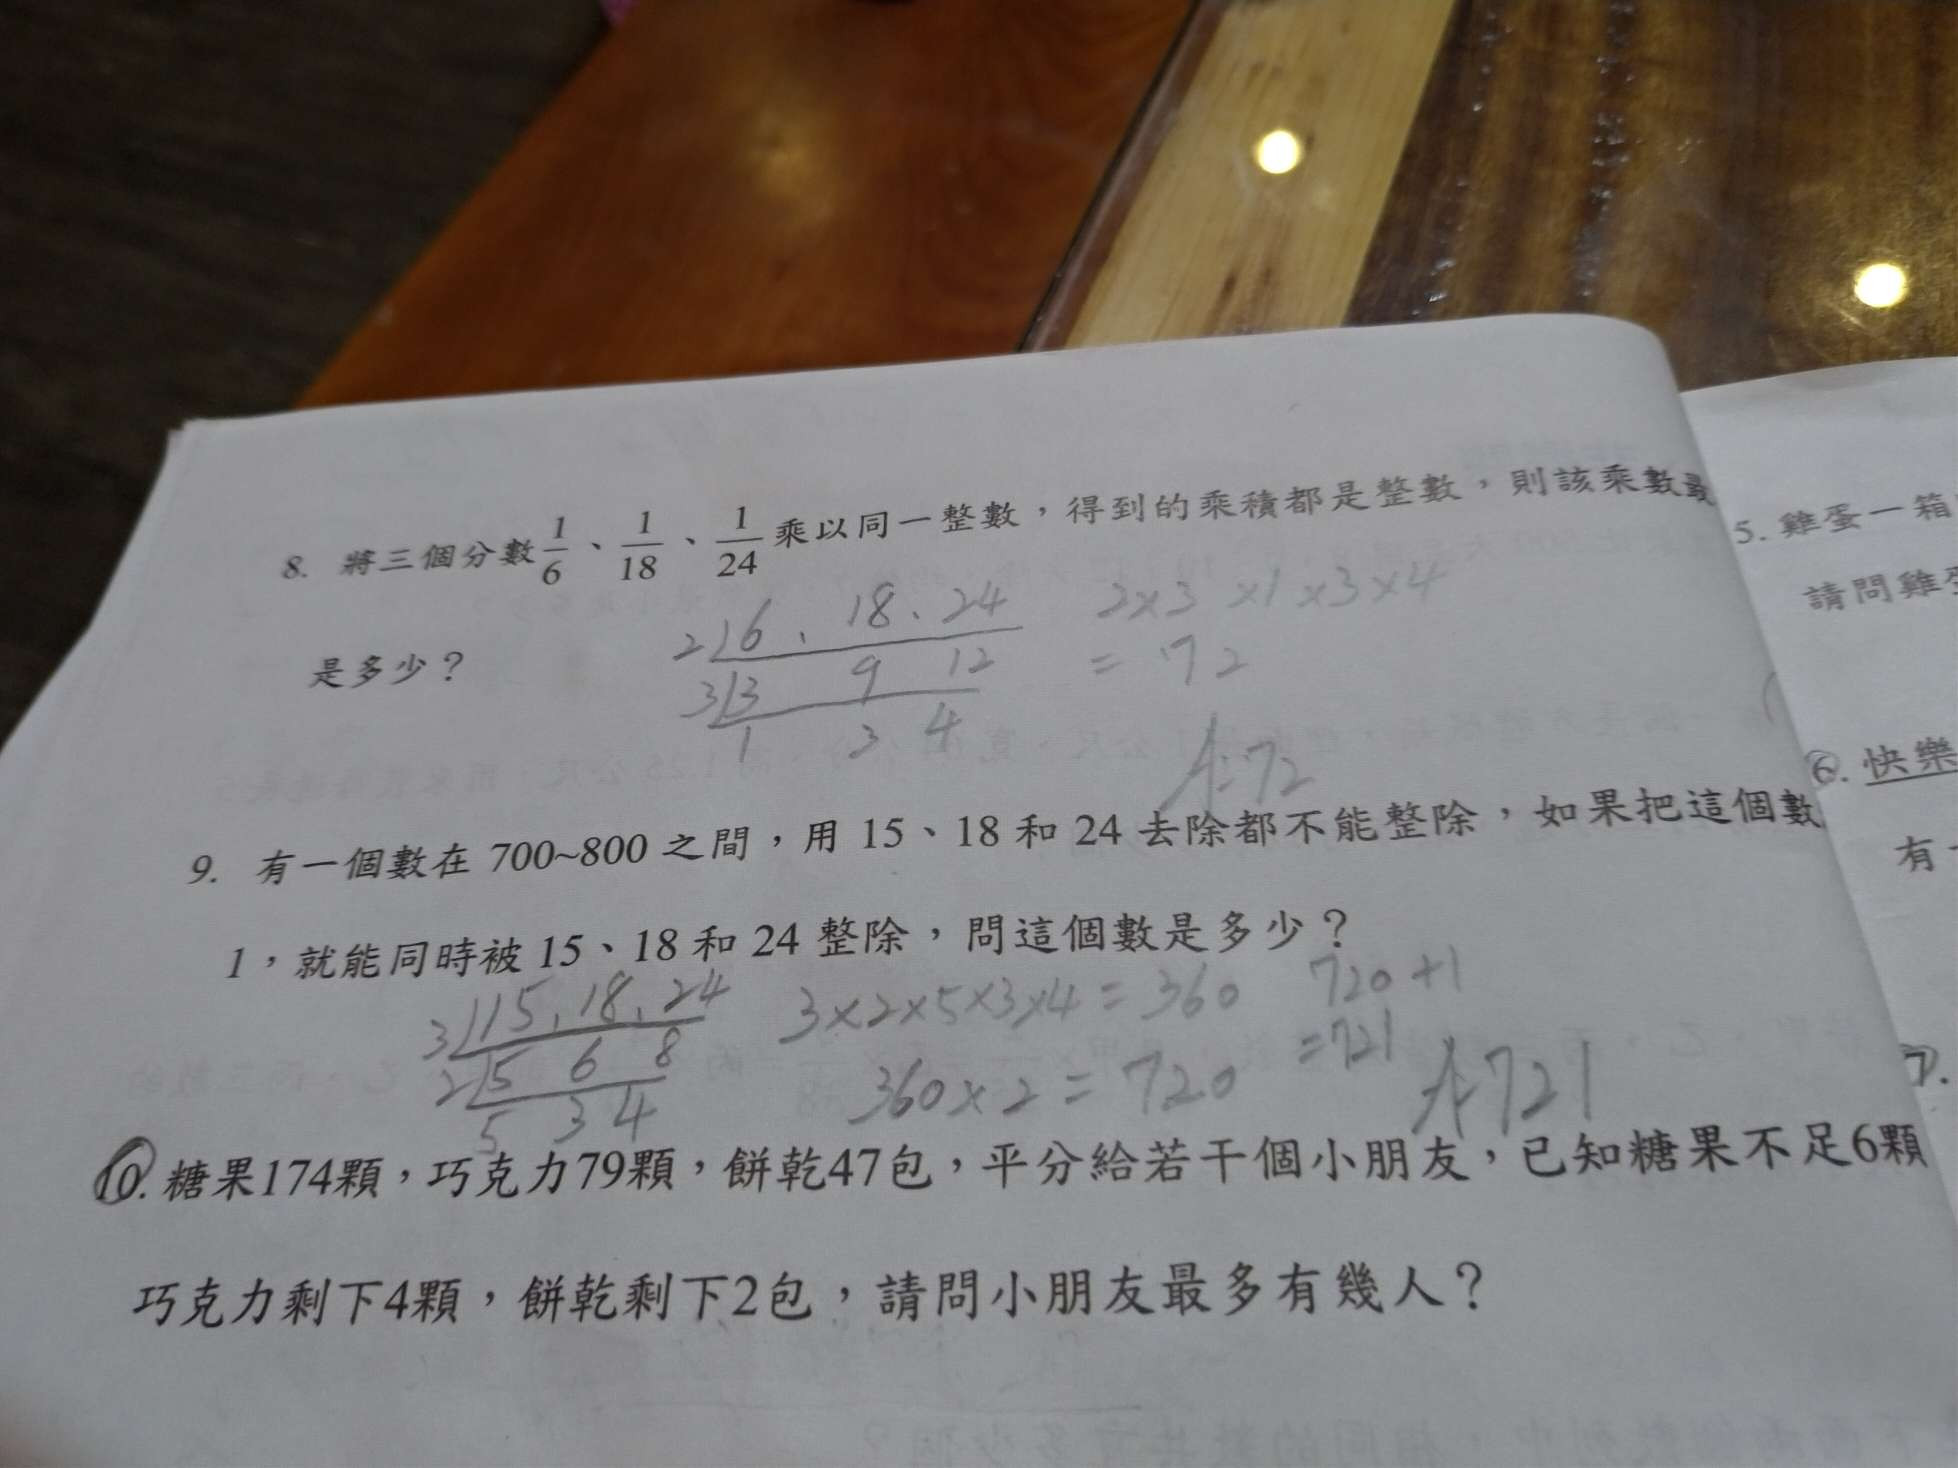 8. 將三個分數 1/6、1/18、1/24 乘以同一整數，得到的乘積都是整數，則該乘數最
是多少？
2 6、18、24
3 3 9 12
1 3 4
2×3×1×3×4
=72
A:72
9. 有一個數在 700~800 之間，用 15、18 和 24 去除都不能整除，如果把這個數
1，就能同時被 15、18 和 24 整除，問這個數是多少？
3 15、18、24
2 5 6 8
5 3 4
3×2×5×3×4=360
360×2=720
720+1
=721
A:721
10. 糖果174顆，巧克力79顆，餅乾47包，平分給若干個小朋友，已知糖果不足6顆
巧克力剩下4顆，餅乾剩下2包，請問小朋友最多有幾人？
5. 雞蛋一箱
請問雞
6. 快樂
有
7.